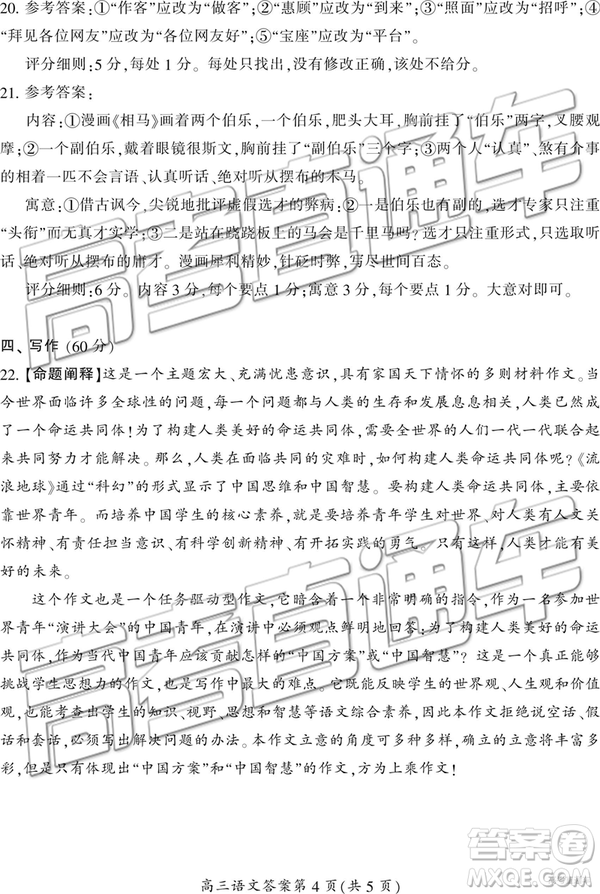 20. 参考答案:①“作客”应改为“做客”;②“惠顾”应改为“到来”;③“照面”应改为“招呼”;④
“拜见各位网友”应改为“各位网友好”;⑤“宝座”应改为“平台”。
评分细则:5 分,每处 1 分。只找出,没有修改正确,该处不给分。
21. 参考答案:
内容:①漫画《相马》画着两个伯乐,一个伯乐,肥头大耳,胸前挂了“伯乐”两字,叉腰观
摩;②一个副伯乐,戴着眼镜很斯文,胸前挂了“副伯乐”三个字;③两个人“认真”、煞有介事
的相着一匹不会言语、认真听话、绝对听从摆布的木马。
寓意:①借古讽今,尖锐地批评虚假选才的弊病;②一是伯乐也有副的,选才专家只注重
“头衔”而无真才实学;③二是站在跷跷板上的马会是千里马吗?选才只注重形式,只选取听
话、绝对听从摆布的庸才。漫画犀利精妙,针砭时弊,写尽世间百态。
评分细则:6分。内容 3 分,每个要点 1 分;寓意 3 分,每个要点 1 分。大意对即可。
四、写作(60 分)
22.【命题阐释】这是一个主题宏大、充满忧患意识,具有家国天下情怀的多则材料作文。当
今世界面临许多全球性的问题,每一个问题都与人类的生存和发展息息相关,人类已然成
了一个命运共同体!为了构建人类美好的命运共同体,需要全世界的人们一代一代联合起
来共同努力才能解决。那么,人类在面临共同的灾难时,如何构建人类命运共同体呢?《流
浪地球》通过“科幻”的形式显示了中国思维和中国智慧。要构建人类命运共同体,主要依
靠世界青年。而培养中国学生的核心素养,就是要培养青年学生对世界、对人类有人文关
怀精神、有担当意识、有科学创新精神、有开拓实践的勇气。只有这样,人类才会有一个美
好的未来。
这个作文也是一个任务驱动型作文,它暗含着一个非常明确的指令,作为一名参加世
界青年“演讲大会”的中国青年,在演讲中必须观点鲜明地回答:为了构建人类美好的命运
共同体,作为当代中国青年应该贡献怎样的“中国方案”或“中国智慧”?这是一个真正能够
挑战学生思想力的作文,也是写作中最大的难点。它既能反映学生的世界观、人生观和价
值观,也能考查出学生的知识、视野、思想和智慧等语文综合素养,因此本作文拒绝说空话、
假话和套话,必须写出解决问题的办法。本作文立意的角度可多种多样,内容丰富多
彩,但是只有体现出“中国方案”和“中国智慧”的作文,方为上乘作文!
高三语文答案第 4 页(共 5 页)
高考直通车
高考直通车
答案圈